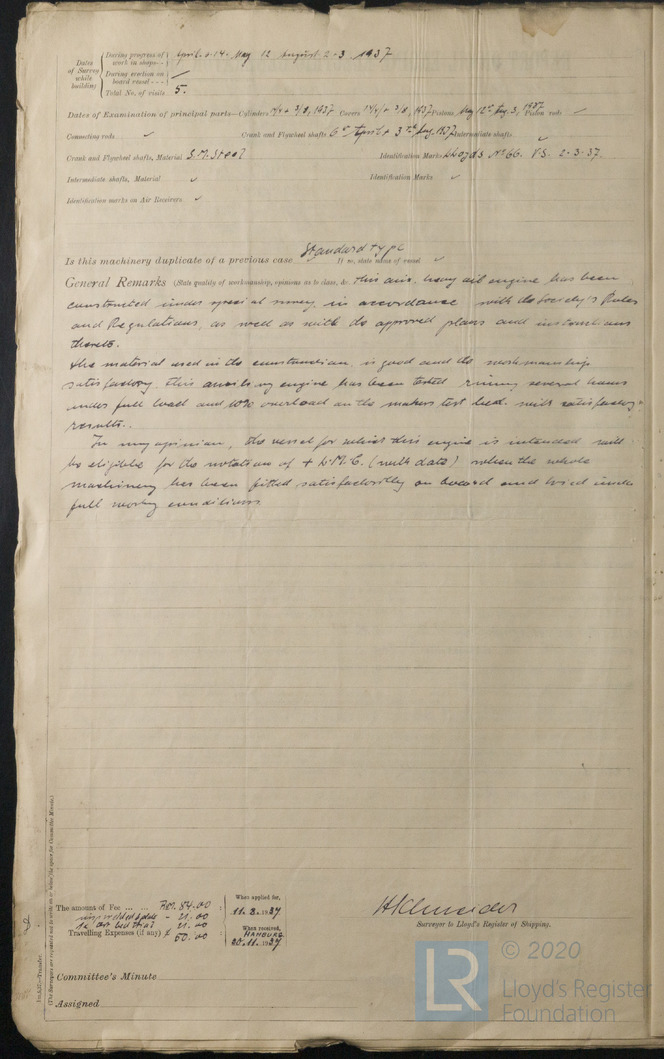 Dates of Survey while building
During progress of work in shops - - April. 6. 14. May 12 August 2 - 3 1937
During erection on board vessel - - -
Total No. of visits 5.
Dates of Examination of principal parts—Cylinders 14/4 + 3/8, 1937 Covers 14/4 + 3/8, 1937 Pistons May 12th Aug. 3, 1937 Piston rods ✓
Connecting rods ✓ Crank and Flywheel shafts 6th April + 3rd Aug. 1937 Intermediate shafts ✓
Crank and Flywheel shafts, Material S.M. Steel Identification Marks Lloyds No 66. V.S. 2-3-37.
Intermediate shafts, Material ✓ Identification Marks ✓
Identification marks on Air Receivers ✓
Is this machinery duplicate of a previous case Standard type If so, state name of vessel ✓
General Remarks (State quality of workmanship, opinions as to class, &c. This aux. heavy oil engine has been
constructed under special survey in accordance with the Society's Rules
and Regulations, as well as with the approved plans and instructions
thereto.
The material used in the construction is good and the workmanship
satisfactory. This auxiliary engine has been tested running several hours
under full load and 10% overload on the makers test bed. with satisfactory
results.
In my opinion, the vessel for which this engine is intended will
be eligible for the notation of + L.M.C. (with date) when the whole
machinery has been fitted satisfactorily on board and tried under
full working conditions
The amount of Fee ... ... RM. 84.00 : When applied for,
- 21.00 11.8.1937
21.00 When received,
Travelling Expenses (if any) £ 60.00 : HAMBURG
20.11.1937
Surveyor to Lloyd's Register of Shipping.
Committee's Minute
Assigned
(The Surveyors are requested not to write on or below the space for Committee's Minute.)
LR
© 2020
Lloyd's Register
Foundation